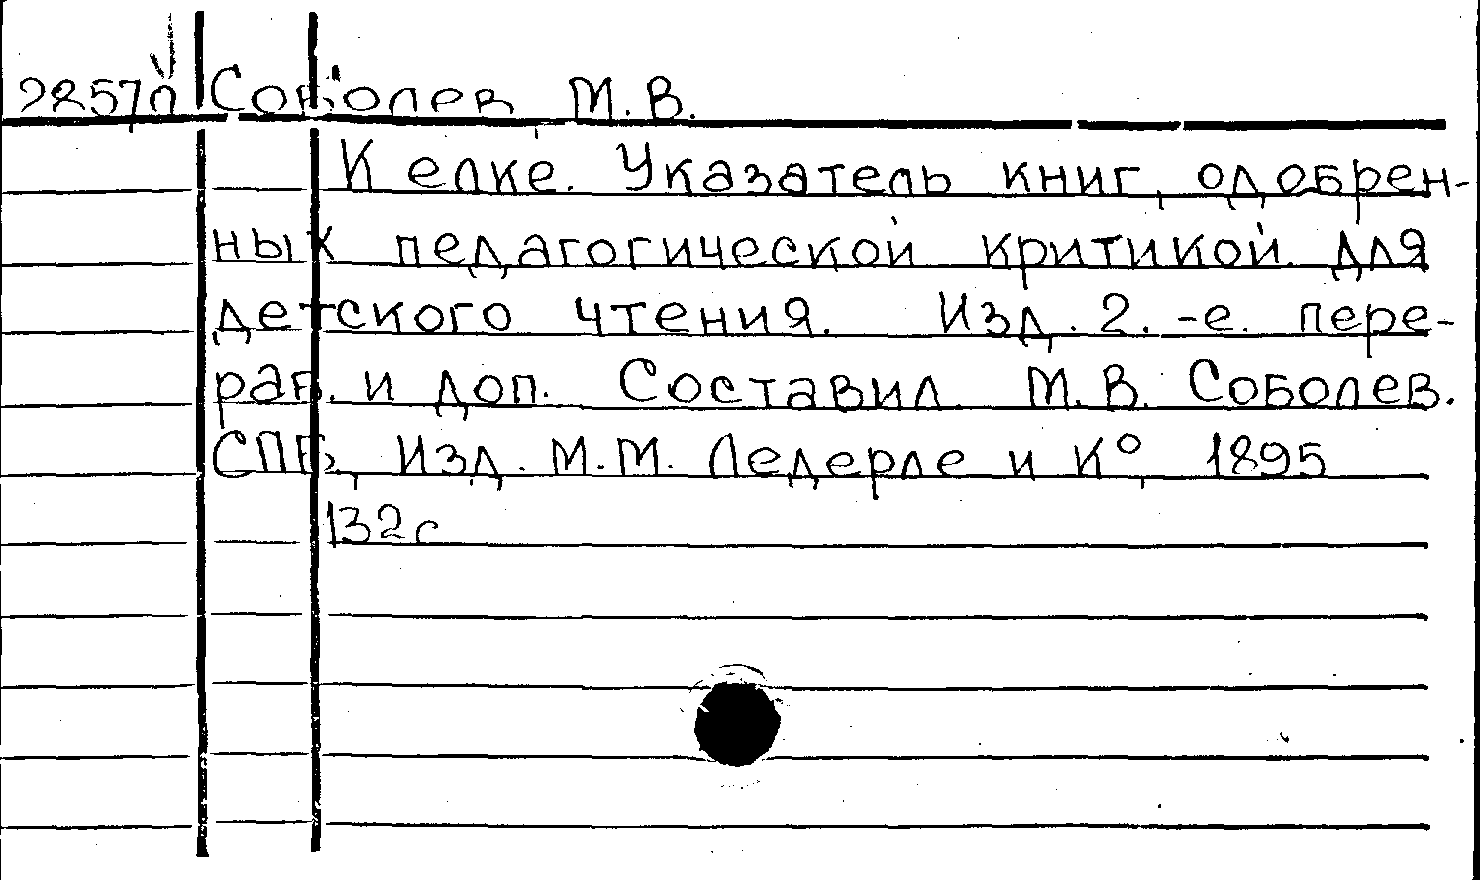 28570 Соболев М.В.
К елке. Указатель книг, одобрен-
ных педагогической критикой для
детского чтения. Изд. 2.-е. пере-
раб. и доп. Составил М.В. Соболев.
СПБ, Изд. М.М. Ледерле и К°, 1895
132с